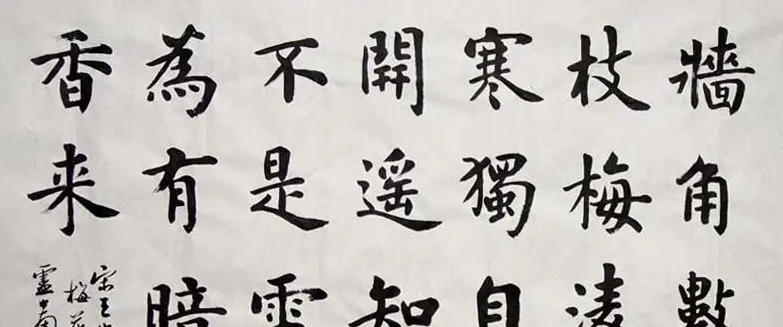 牆角數
枝梅淩
寒獨自
開遥知
不是雪
為有暗
香来
宋王安
梅花